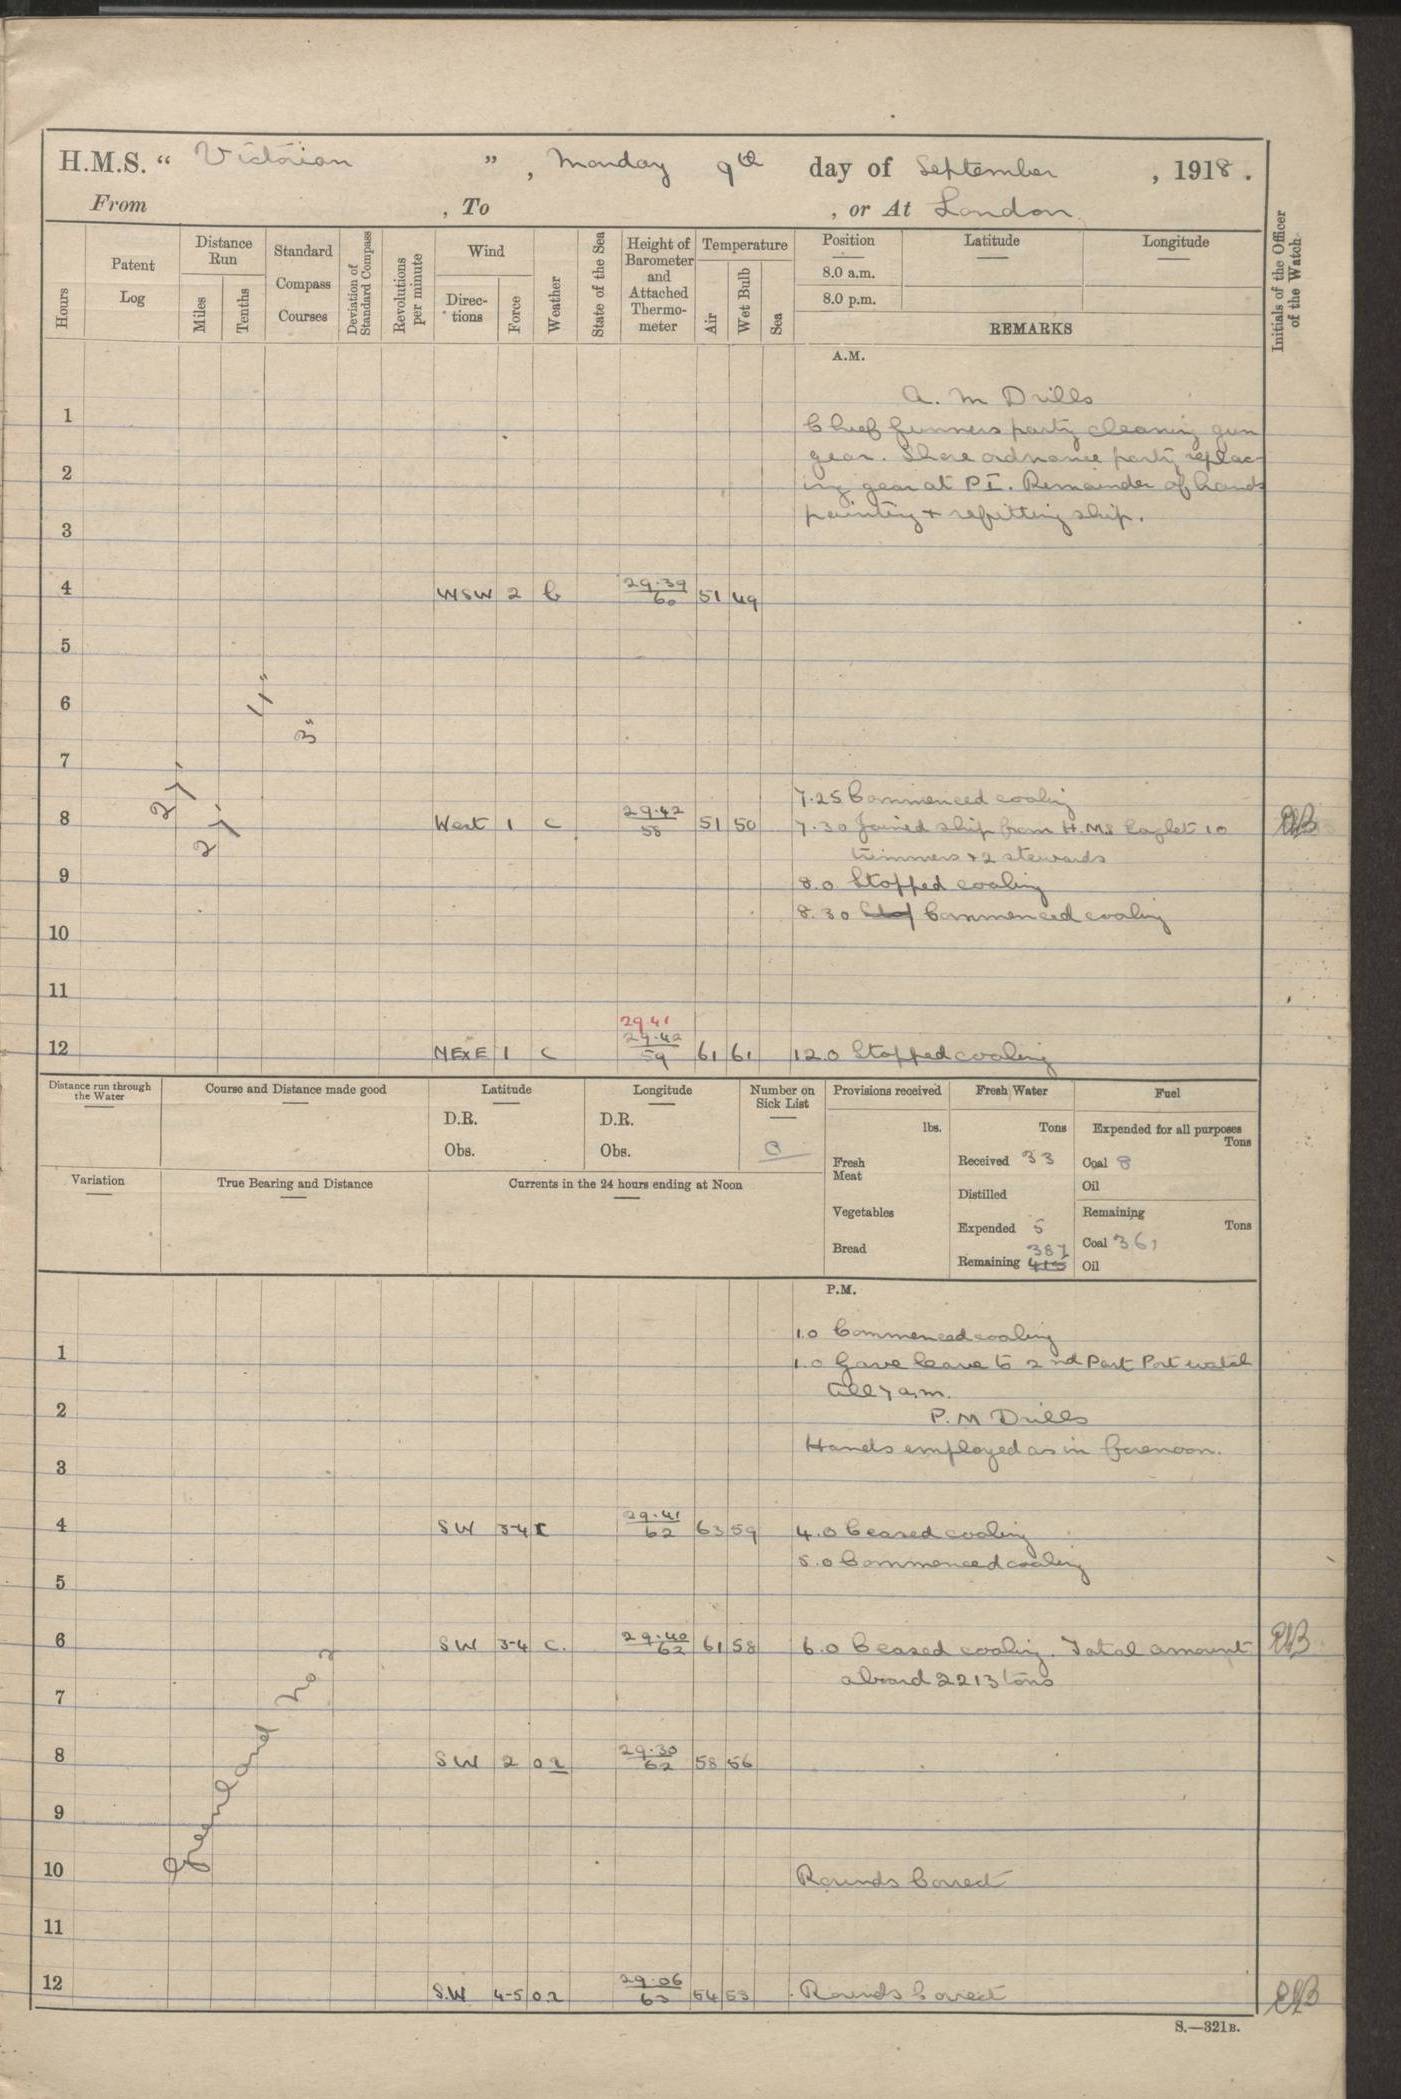 H.M.S. “ Victorian ” , Monday 9th day of September , 1918 .
From , To , or At London
Hours
Patent Log
Distance Run
Miles
Tenths
Standard Compass Courses
Deviation of Standard Compass
Revolutions per minute
Wind
Direc-tions
Force
Weather
State of the Sea
Height of Barometer and Attached Thermo-meter
Temperature
Air
Wet Bulb
Sea
Position
8.0 a.m.
8.0 p.m.
Latitude
Longitude
REMARKS
Initials of the Officer of the Watch
A.M.
A. M Drills
1 Chief Gunners party cleaning gun
gear. Shore ordnance party replac-
2 ing gear at P I. Remainder of hands
painting & refitting ship.
3
4 WSW 2 b 29.39 60 51 49
5
6
4"
3"
7
2 7'
2 7'
7.25 Commenced coaling
8 West 1 c 29.42 58 51 50 7.30 Joined ship from H.M.S Eaglet 10
trimmers & 2 stewards
9 8.0 Stopped coaling
8.30 Commenced coaling
10
11
29.41
12 NExE 1 c 29.42 59 61 61 12.0 Stopped coaling
Distance run through the Water
Course and Distance made good
Latitude
D.R.
Obs.
Longitude
D.R.
Obs.
Number on Sick List
0
Provisions received
lbs.
Fresh Meat
Vegetables
Bread
Fresh Water
Tons
Received 33
Distilled
Expended 5
387
Remaining 415
Fuel
Expended for all purposes
Tons
Coal 8
Oil
Remaining
Tons
Coal 361
Oil
Variation
True Bearing and Distance
Currents in the 24 hours ending at Noon
P.M.
1.0 Commenced coaling
1 1.0 Gave leave to 2nd Part Port watch
till 7 a.m.
2 P.M Drills
Hands employed as in forenoon.
3
4 SW 3-4 c 29.41 62 63 59 4.0 Ceased coaling
5.0 Commenced coaling
5
6 SW 3-4 c. 29.40 62 61 58 6.0 Ceased coaling. Total amount
aboard 2213 tons
7
8 SW 2 or 29.30 62 58 56
9
Greenland No 2
10 Rounds Correct
11
12 S.W 4-5 or 29.06 63 54 53 Rounds Correct
S.—321B.